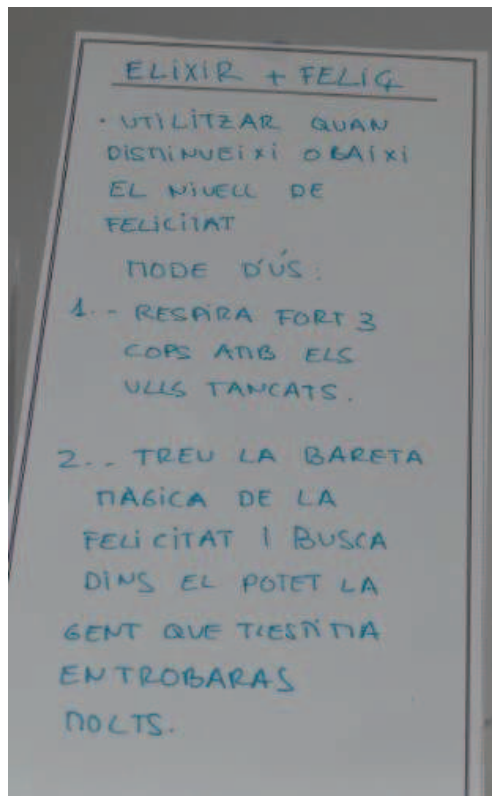 ELIXIR + FELIÇ
· UTILITZAR QUAN
DISMINUEIXI O BAIXI
EL NIVELL DE
FELICITAT
MODE D'ÚS:
1.- RESPIRA FORT 3
COPS AMB ELS
ULLS TANCATS.
2.. TREU LA BARETA
MÀGICA DE LA
FELICITAT I BUSCA
DINS EL POTET LA
GENT QUE T'ESTIMA
EN TROBARAS
MOLTS.